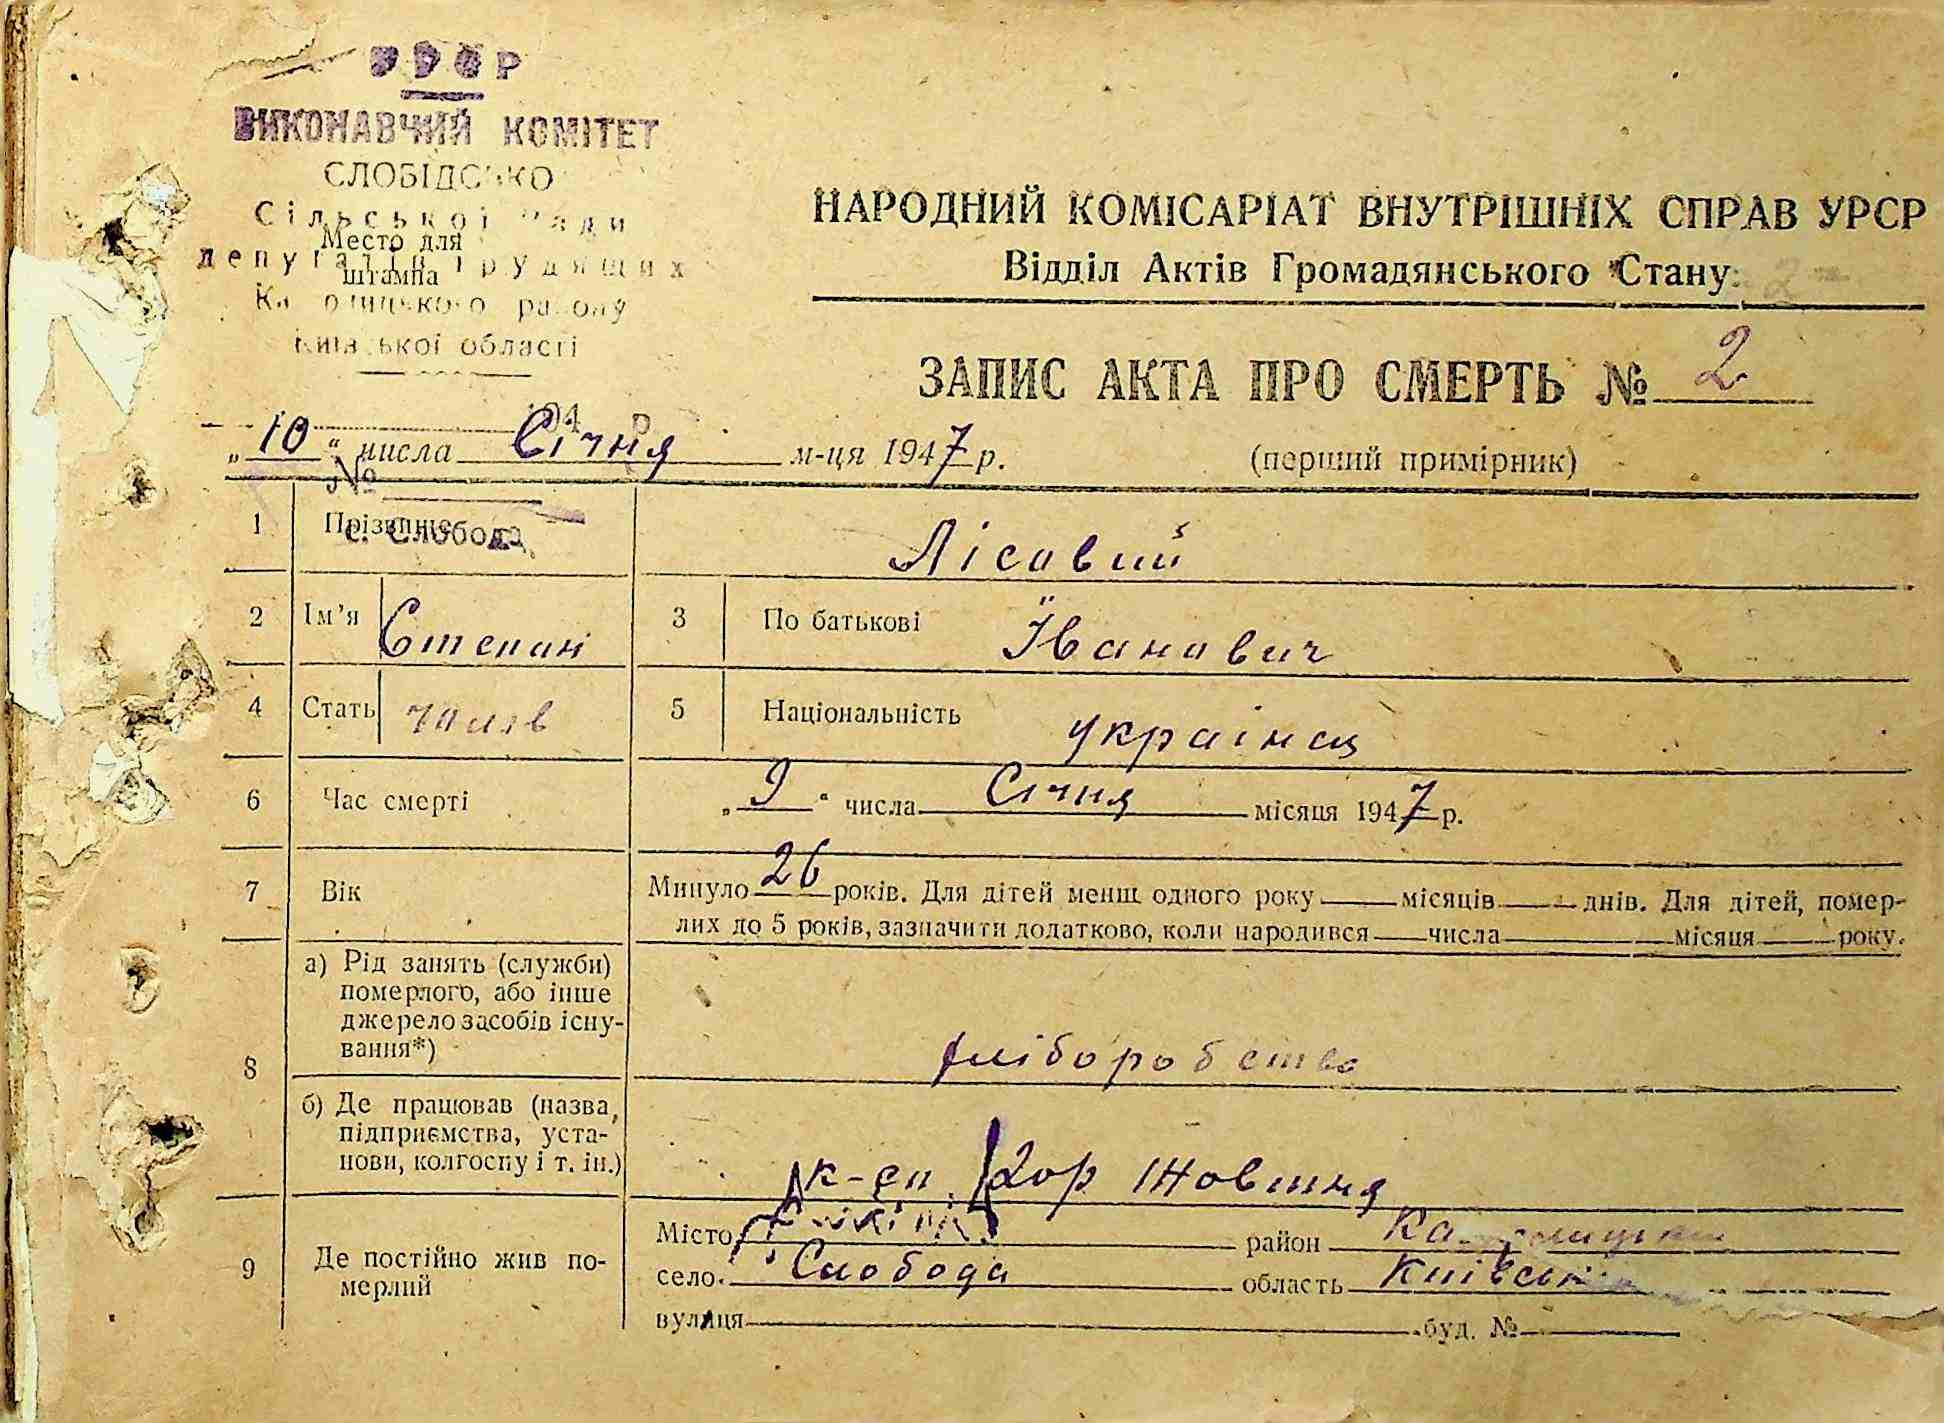 УРСР
ВИКОНАВЧИЙ КОМІТЕТ
СЛОБІДСЬКО
Сільської Ради
Место для
депутатів трудящих
штампа
району
Київської області
194 р
№
с. Слобода
НАРОДНИЙ КОМІСАРІАТ ВНУТРІШНІХ СПРАВ УРСР
Відділ Актів Громадянського Стану
ЗАПИС АКТА ПРО СМЕРТЬ № 2
„10“ числа Січня м-ця 1947 р.
(перший примірник)
1 Прізвище Лісовий
2 Ім'я Степан 3 По батькові Їванович
4 Стать чолов 5 Національність українец
6 Час смерті „9“ числа Січня місяця 1947 р.
7 Вік Минуло 26 років. Для дітей менш одного року місяців днів. Для дітей, помер-
лих до 5 років, зазначити додатково, коли народився числа місяця року.
8 а) Рід занять (служби)
померлого, або інше
джерело засобів існу-
вання*)
хліборобство
б) Де працював (назва,
підприємства, уста-
нови, колгоспу і т. ін.)
к-сп 2ор Жовтня
9 Де постійно жив по-
мерлий
Місто район
село Слобода область Київськ
вулиця буд. №